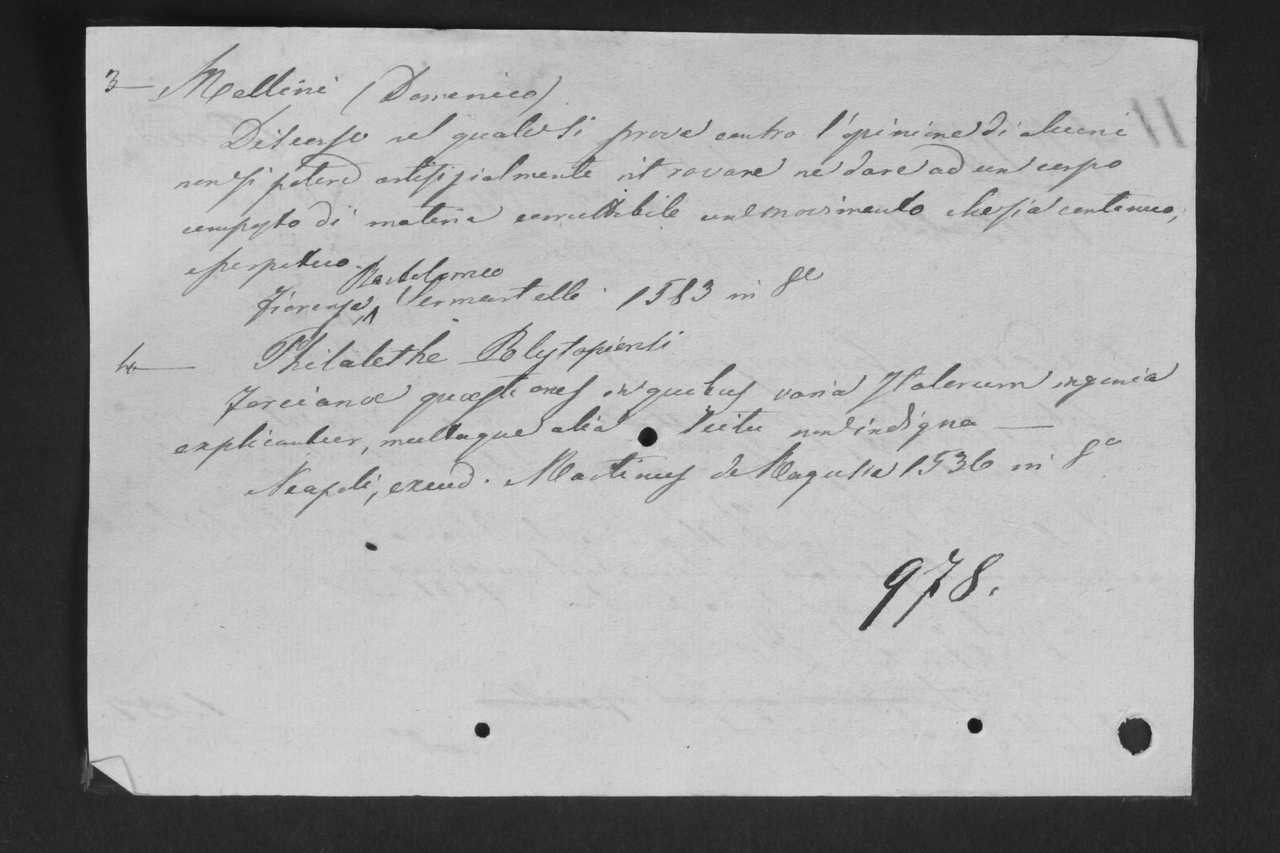 3 — Mellini (Domenico)
Discorso nel quale si prova contro l'opinione di alcuni
non si potere artifizialmente ritrovare ne dare ad un corpo
composto di materia corruttibile un movimento che sia continuo,
e perpetuo.
Bartolomeo
Fiorenza, ^ Sermartelli 1583 in 8o
4 — Philalethe Polytopiensi
Forcianae quaestiones in quibus varia Italorum ingenia
explicantur, multaque alia scitu non indigna —
Neapoli, excud. Martinus de Ragusia 1536 in 8o
978.